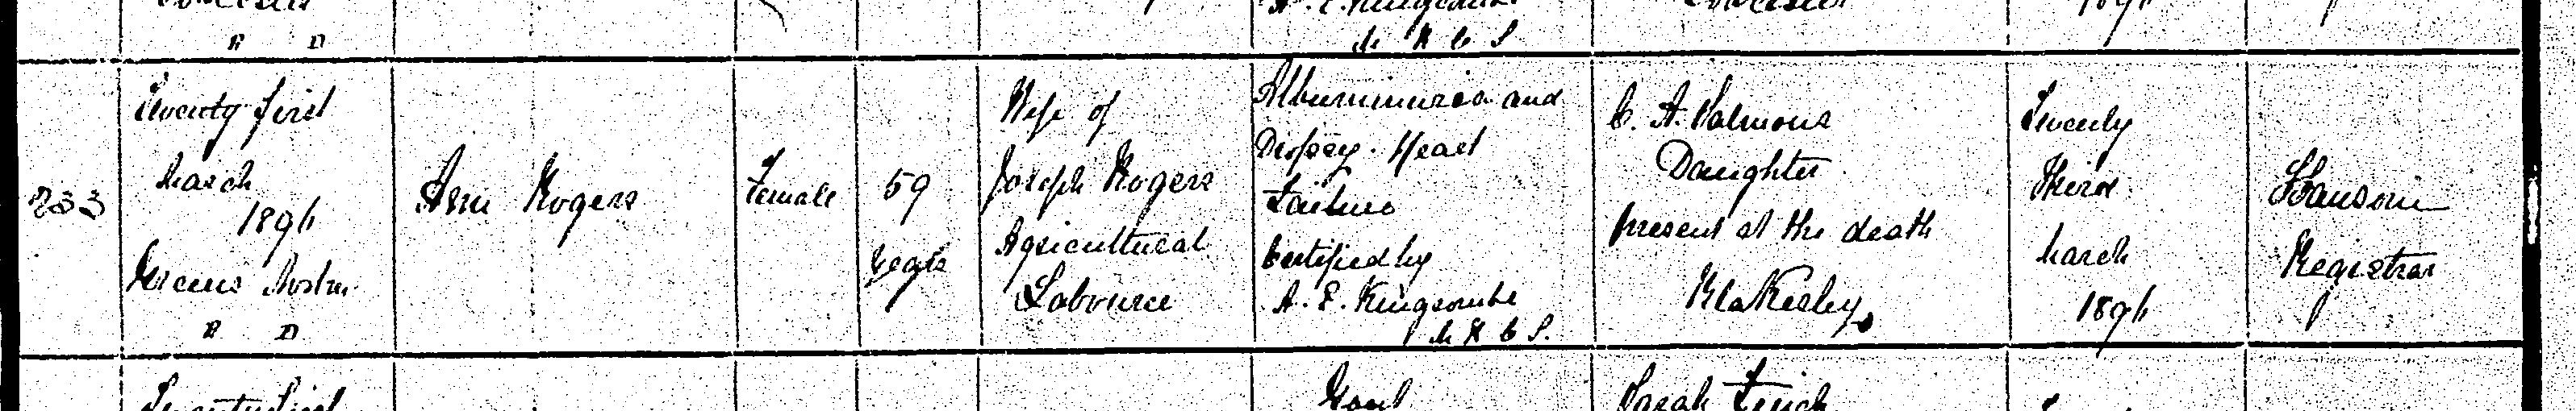 R D
M R C S
233
Twenty first
March
1896
Greens Norton
R D
Ann Rogers
Female
59
years
Wife of
Joseph Rogers
Agricultural
Labourer
Albuminurea and
Dropsy. Heart
Failure
Certified by
A. E. Kingcombe
M R C S.
C. A. Salmons
Daughter
present at the death
Blakesley
Twenty
Third
March
1896
Registrar
Sarah